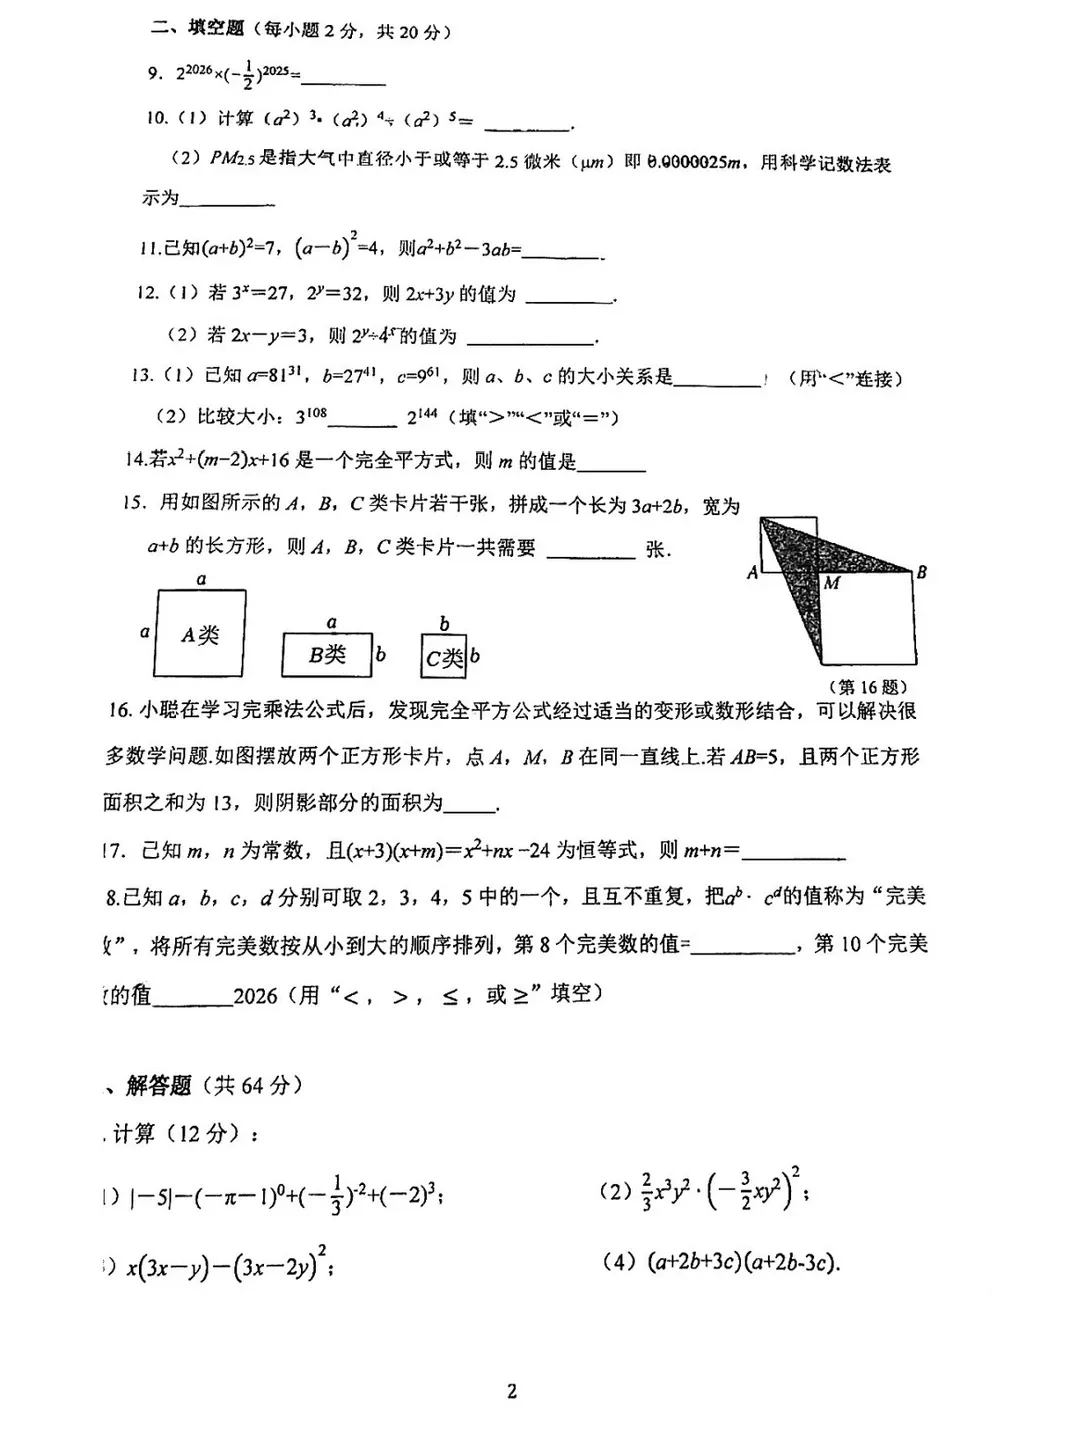 二、填空题（每小题 2 分，共 20 分）
9. 2²⁰²⁶×(-1/2)²⁰²⁵=________
10.（1）计算（a²）³•（a²）⁴÷（a²）⁵= ________.
（2）PM2.5 是指大气中直径小于或等于 2.5 微米（μm）即 0.0000025m，用科学记数法表
示为________
11.已知(a+b)²=7，(a-b)²=4，则a²+b²-3ab=________.
12.（1）若 3ˣ=27，2ʸ=32，则 2x+3y 的值为 ________.
（2）若 2x-y=3，则 2ʸ÷4ˣ的值为 ________.
13.（1）已知 a=81³¹，b=27⁴¹，c=9⁶¹，则 a、b、c 的大小关系是________（用“<”连接）
（2）比较大小：3¹⁰⁸______ 2¹⁴⁴（填“>”“<”或“=”）
14.若x²+(m-2)x+16 是一个完全平方式，则 m 的值是______
15. 用如图所示的 A，B，C 类卡片若干张，拼成一个长为 3a+2b，宽为
a+b 的长方形，则 A，B，C 类卡片一共需要 ________ 张.
a
a
A类
a
B类
b
b
C类
b
A
M
B
（第 16 题）
16. 小聪在学习完乘法公式后，发现完全平方公式经过适当的变形或数形结合，可以解决很
多数学问题.如图摆放两个正方形卡片，点 A，M，B 在同一直线上.若 AB=5，且两个正方形
面积之和为 13，则阴影部分的面积为_____.
17. 已知 m，n 为常数，且(x+3)(x+m)=x²+nx -24 为恒等式，则 m+n=________
8.已知 a，b，c，d 分别可取 2，3，4，5 中的一个，且互不重复，把aᵇ · cᵈ的值称为“完美
”，将所有完美数按从小到大的顺序排列，第 8 个完美数的值=________，第 10 个完美
的值_______2026（用“<，>，≤，或 ≥”填空）
、解答题（共 64 分）
.计算（12 分）:
）|-5|-(-π-1)⁰+(-1/3)⁻²+(-2)³;
（2）2/3x³y²·(-3/2xy²)²;
）x(3x-y)-(3x-2y)²;
（4）(a+2b+3c)(a+2b-3c).
2